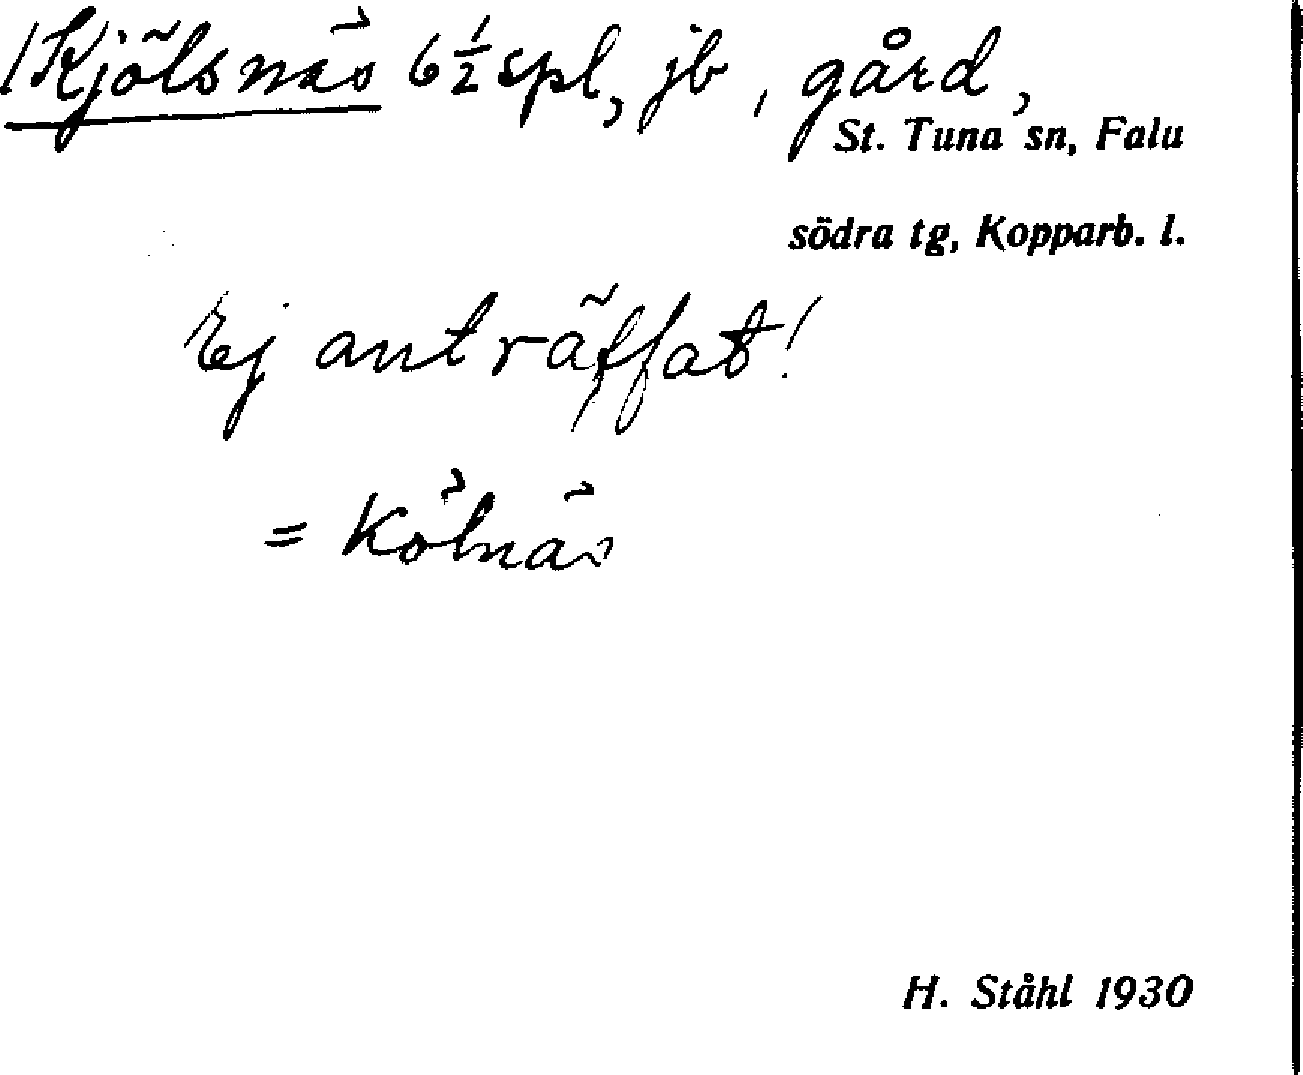 /Kjölsnäs 6½ spl, jb, gård,
St. Tuna sn, Falu
södra tg, Kopparb. l.
Ej anträffat!
= Kölnäs
H. Ståhl 1930